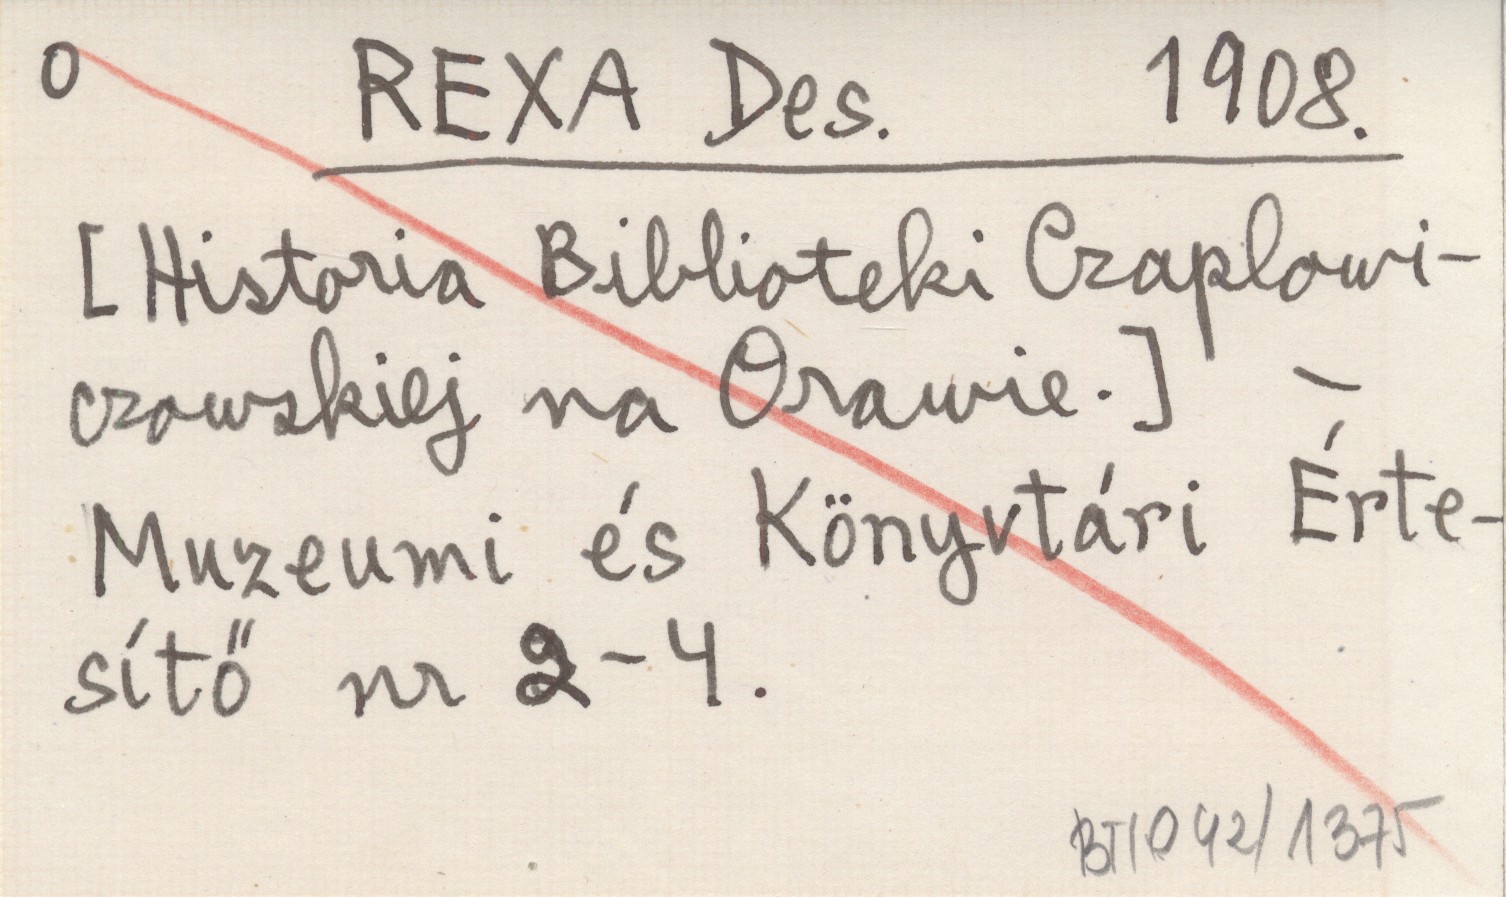 O REXA Des. 1908.
[Historia Biblioteki Czaplowi-
czowskiej na Orawie.] –
Muzeumi és Könyvtári Érte-
sítő nr 2-4.
BTIO 42/1375